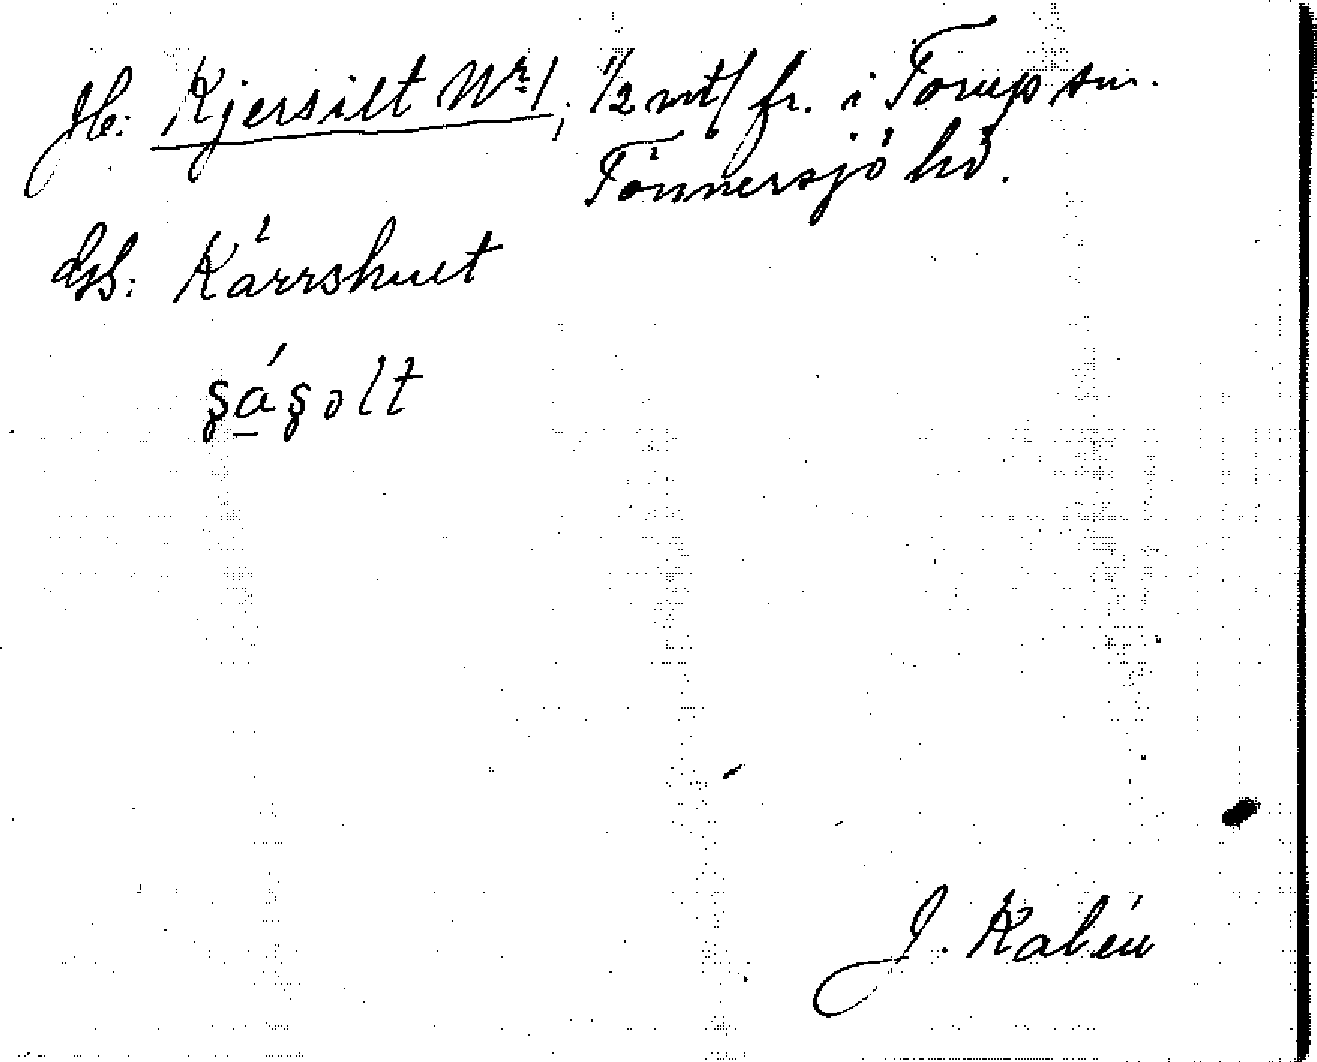 Jb: Kjersilt Nr 1; 1/2 mtl fr. i Torup sn.
Tönnersjö hd.
Kärrshult
J. Kalén